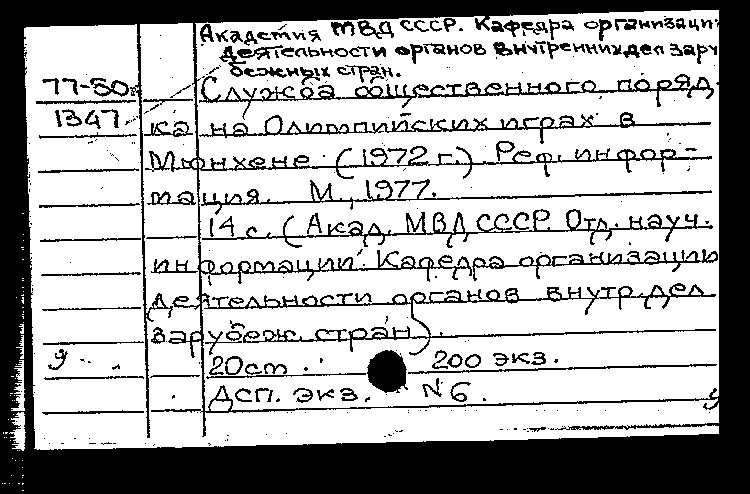 Академия МВД СССР. Кафедра организации
деятельности органов внутренних дел зару
бежных стран.
77-50 Служба общественного поряд-
1347 ка на Олимпийских играх в
Мюнхене (1972 г.) Реф. инфор-
мация. М., 1977.
14 с. (Акад. МВД СССР. Отд. науч.
информации. Кафедра организации
деятельности органов внутр. дел
зарубеж. стран).
20 см 200 экз.
Дсп. экз. N 6.